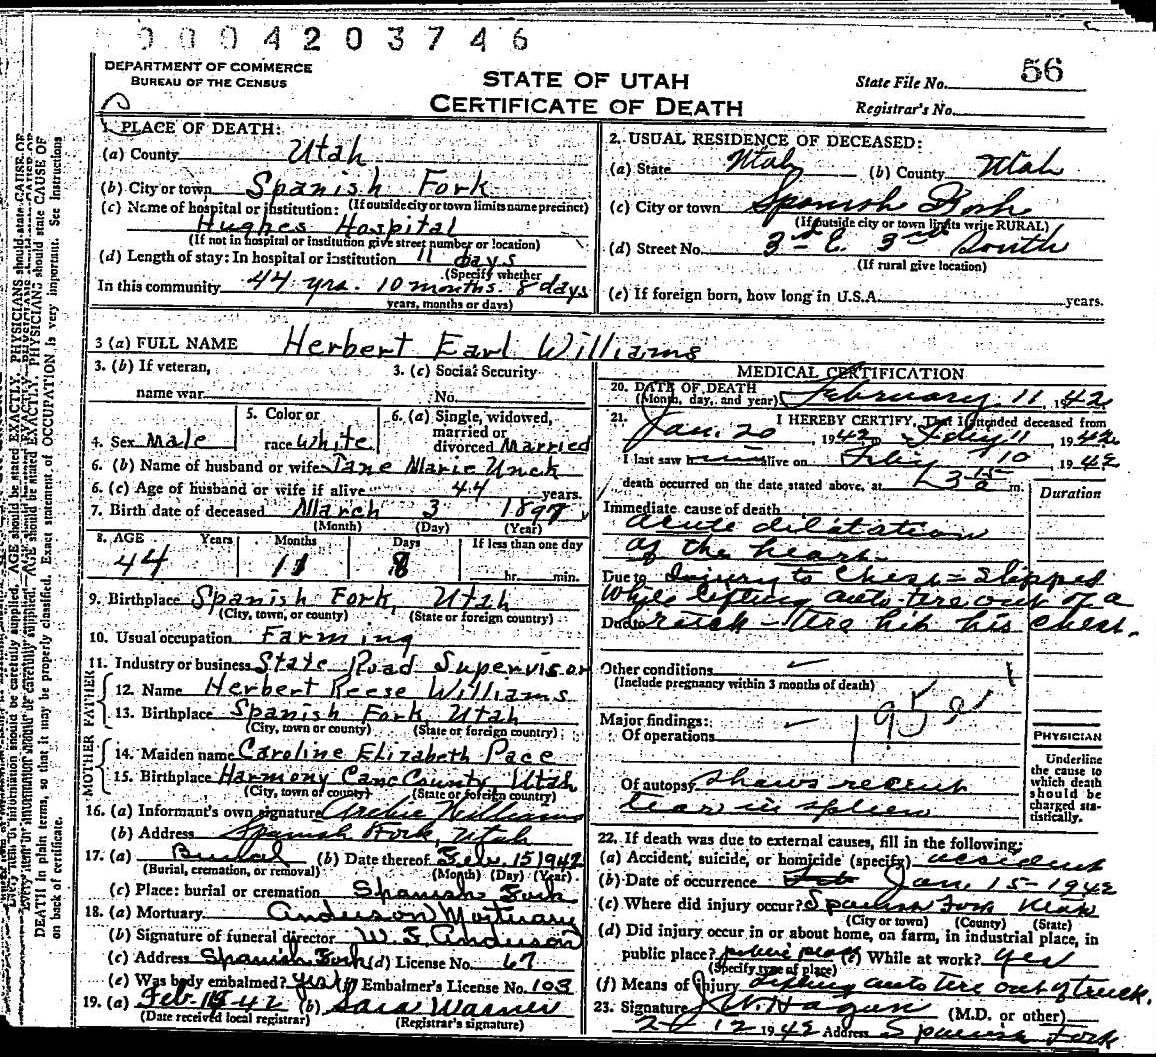 0004203746
DEPARTMENT OF COMMERCE
BUREAU OF THE CENSUS
STATE OF UTAH
CERTIFICATE OF DEATH
State File No. 56
Registrar's No.
1. PLACE OF DEATH:
(a) County Utah
(b) City or town Spanish Fork
(If outside city or town limits name precinct)
(c) Name of hospital or institution:
Hughes Hospital
(If not in hospital or institution give street number or location)
(d) Length of stay: In hospital or institution 11 days
(Specify whether
In this community 44 yrs. 10 months. 8 days
years, months or days)
2. USUAL RESIDENCE OF DECEASED:
(a) State Utah (b) County Utah
(c) City or town Spanish Fork
(If outside city or town limits write RURAL)
(d) Street No. 3rd E. 3rd South
(If rural give location)
(e) If foreign born, how long in U.S.A. years.
3 (a) FULL NAME Herbert Earl Williams
3. (b) If veteran,
name war
3. (c) Social Security
No.
4. Sex Male
5. Color or
race White
6. (a) Single, widowed,
married or
divorced Married
6. (b) Name of husband or wife Jane Marie Unck
6. (c) Age of husband or wife if alive 44 years.
7. Birth date of deceased March 3 1897
(Month) (Day) (Year)
8. AGE Years Months Days If less than one day
44 11 8 hr. min.
9. Birthplace Spanish Fork, Utah
(City, town, or county) (State or foreign country)
10. Usual occupation Farming
11. Industry or business State Road Supervisor
FATHER
12. Name Herbert Reese Williams
13. Birthplace Spanish Fork Utah
(City, town or county) (State or foreign country)
MOTHER
14. Maiden name Caroline Elizabeth Pace
15. Birthplace Harmony Cane County Utah
(City, town or county) (State or foreign country)
16. (a) Informant's own signature Archie Williams
(b) Address Spanish Fork, Utah
17. (a) Burial (b) Date thereof Feb. 15 1942
(Burial, cremation, or removal) (Month) (Day) (Year)
(c) Place: burial or cremation Spanish Fork
18. (a) Mortuary Anderson Mortuary
(b) Signature of funeral director W. F. Anderson
(c) Address Spanish Fork (d) License No. 67
(e) Was body embalmed? yes (f) Embalmer's License No. 103
19. (a) Feb 42 (b) Sara Warner
(Date received local registrar) (Registrar's signature)
MEDICAL CERTIFICATION
20. DATE OF DEATH
(Month, day, and year) February 11, 1942
21. I HEREBY CERTIFY, That I attended deceased from
Jan. 20, 1942 to Feby 11, 1942
I last saw h alive on Feby 10, 1942
death occurred on the date stated above, at 3 15 a m.
Duration
Immediate cause of death
acute dilatation
of the heart.
Due to Injury to chest = Slipped
while lifting auto tire out of a
Due to truck - tire hit his chest.
Other conditions
(Include pregnancy within 3 months of death)
Major findings:
Of operations
Of autopsy shows recent
tear in spleen
PHYSICIAN
Underline
the cause to
which death
should be
charged sta-
tistically.
22. If death was due to external causes, fill in the following:
(a) Accident, suicide, or homicide (specify) accident
(b) Date of occurrence Jan. 15-1942
(c) Where did injury occur? Spanish Fork Utah
(City or town) (County) (State)
(d) Did injury occur in or about home, on farm, in industrial place, in
public place? public place (e) While at work? yes
(Specify type of place)
(f) Means of injury Lifting auto tire out of truck.
23. Signature J. W. Hagan (M.D. or other)
2-12 1942 Address Spanish Fork
DEATH in plain terms, so that it may be properly classified. Exact statement of OCCUPATION is very important. See instructions
on back of certificate.